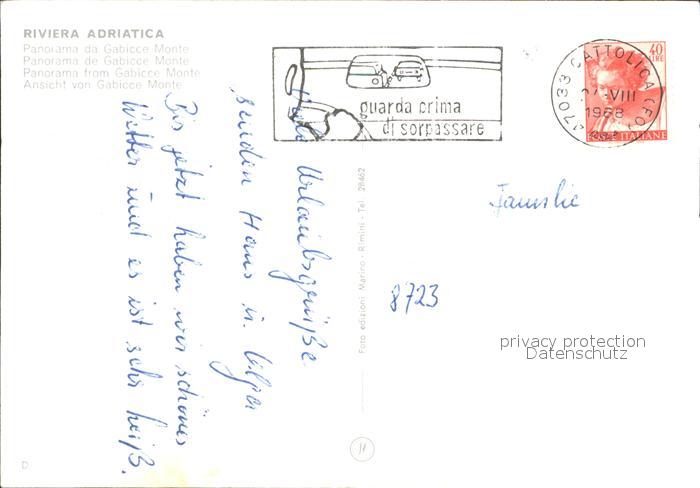 RIVIERA ADRIATICA
Panorama da Gabicce Monte
Panorama de Gabicce Monte
Panorama from Gabicce Monte
Ansicht von Gabicce Monte
guarda prima
di sorpassare
47033 CATTOLICA (FO)
VIII
1968
40
LIRE
POSTE ITALIANE
Viele Urlaubsgrüße
senden Hans u. Olga
Bis jetzt haben wir schönes
Wetter und es ist sehr heiß.
Foto edizioni Marino - Rimini - Tel. 28462
Familie
8723
privacy protection
Datenschutz
D